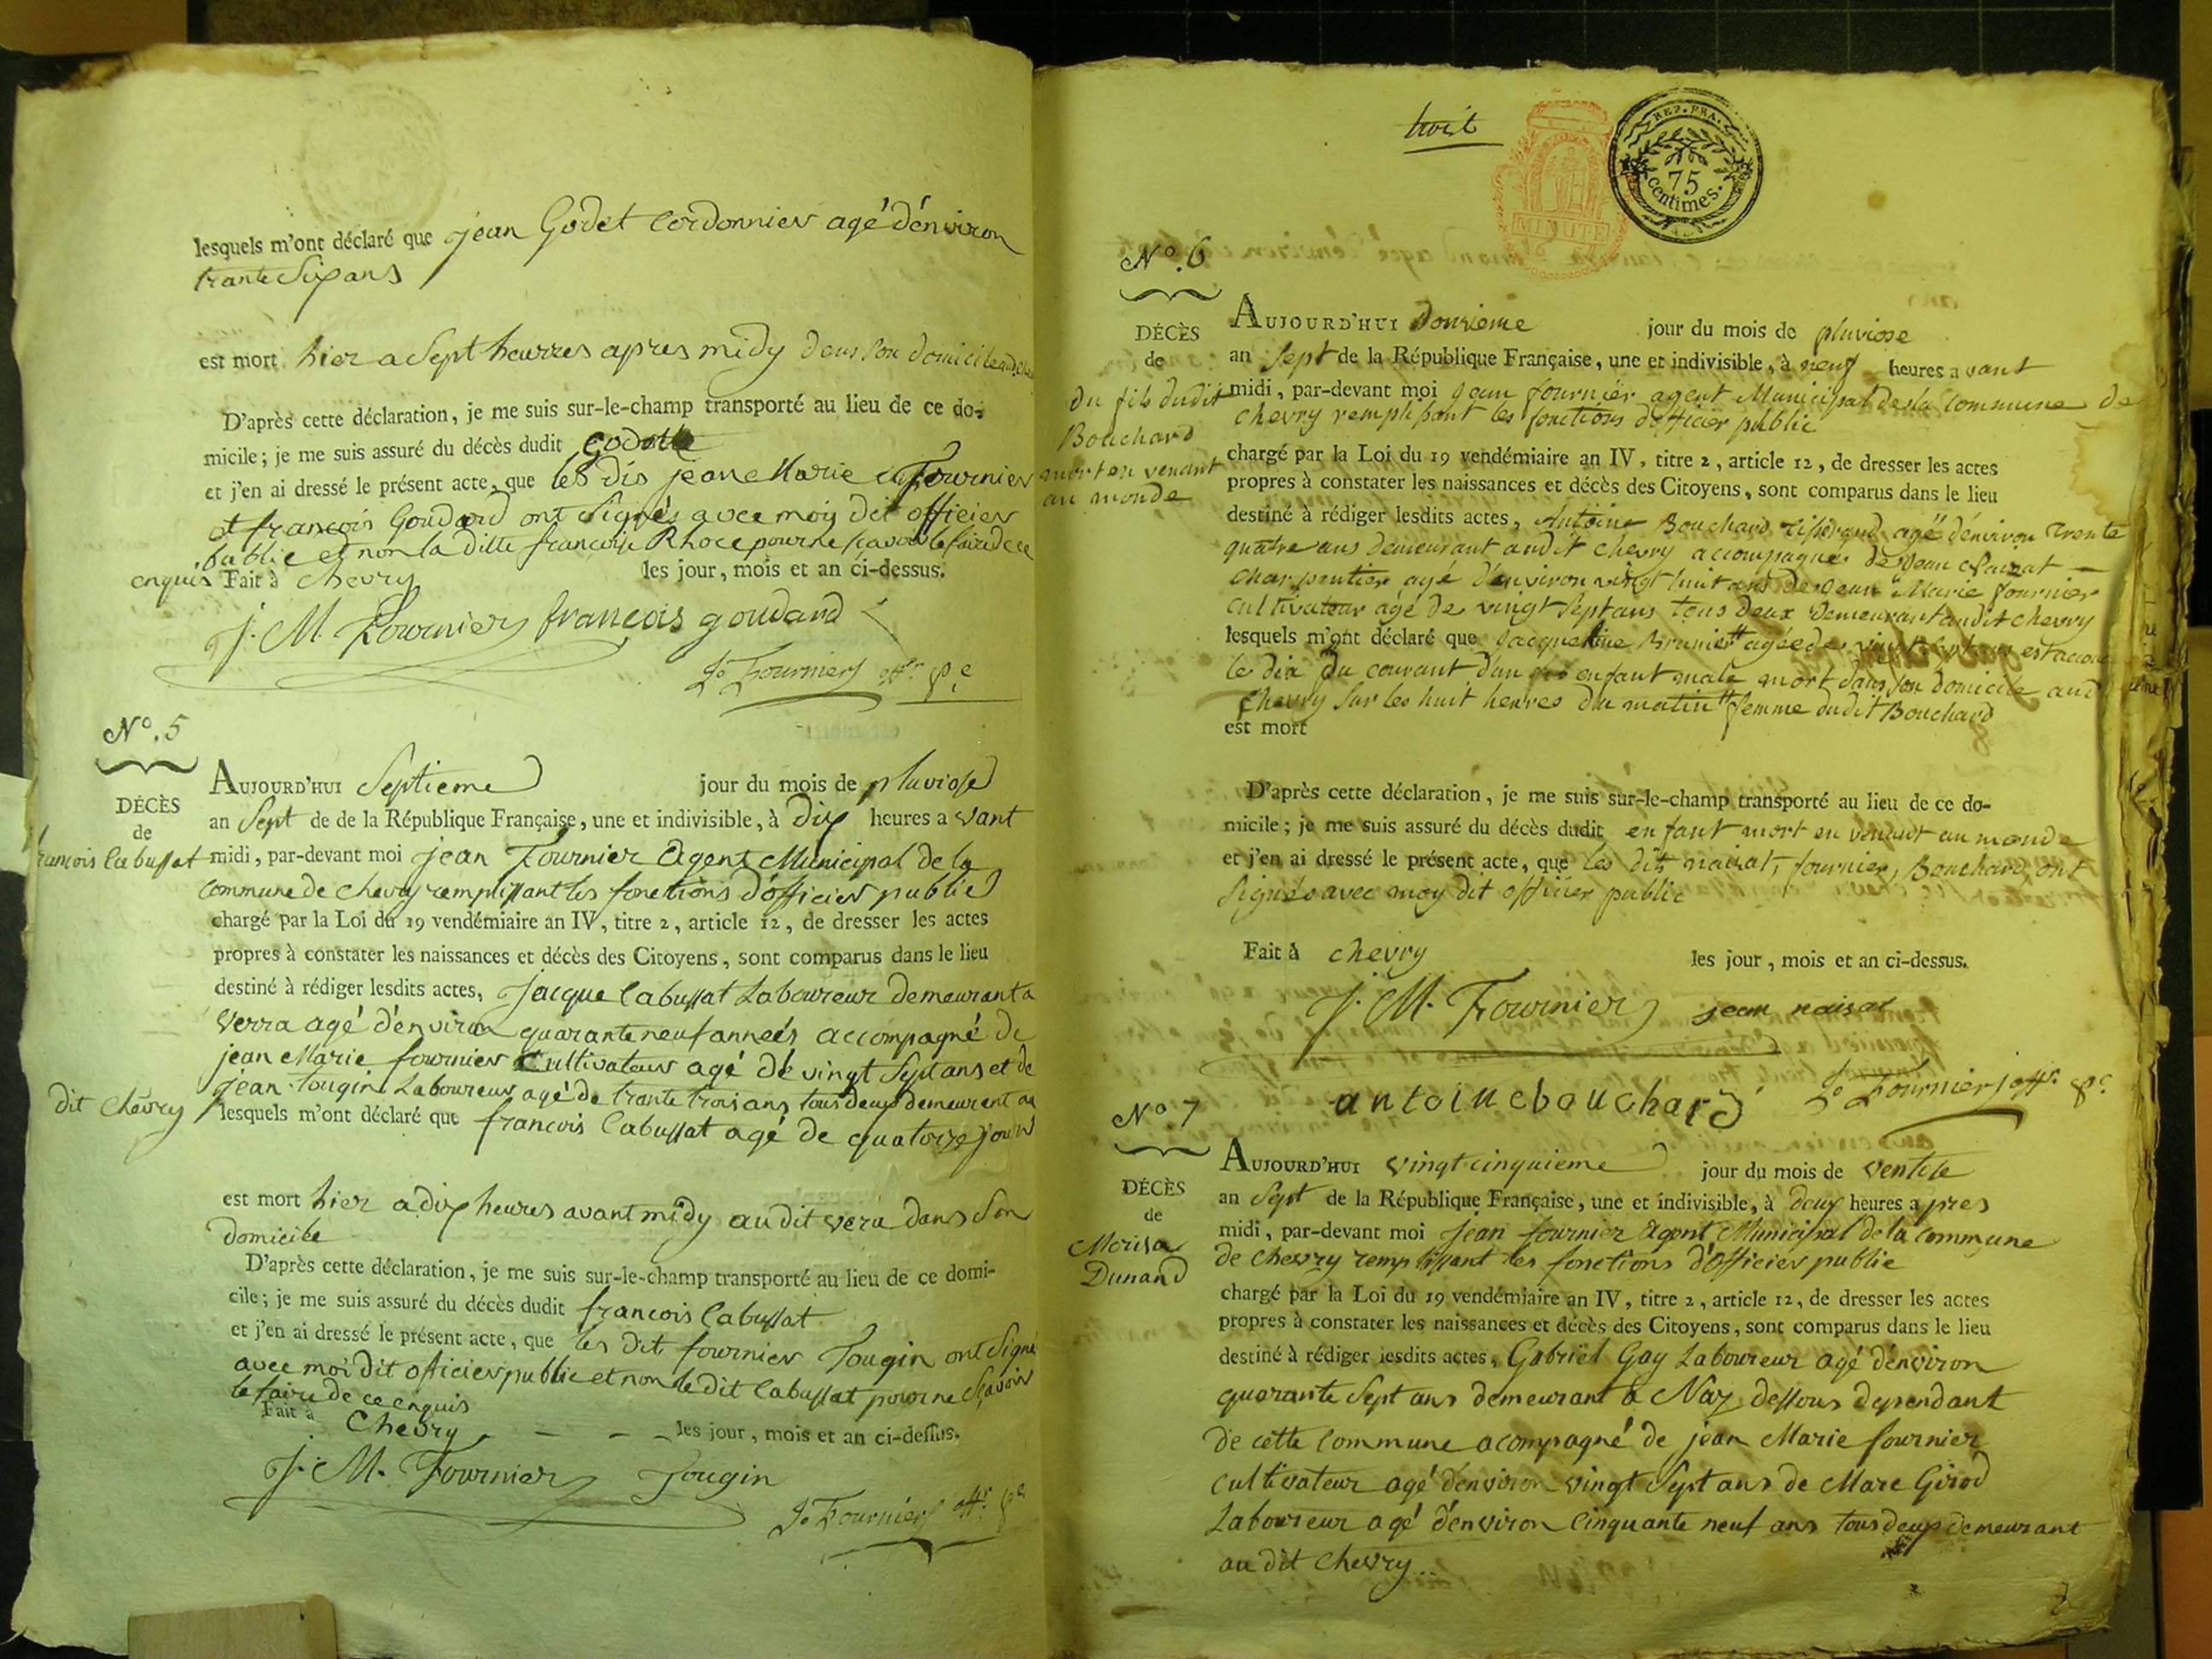 lesquels m'ont déclaré que jean Godet Cordonnier agé d'environ
trante Six ans
est mort hier a Sept heurres apres midy dans Son domicile
D'après cette déclaration, je me suis sur-le-champ transporté au lieu de ce do-
micile; je me suis assuré du décès dudit
et j'en ai dressé le présent acte, que les dis jean Marie Fournier
et françois Goudard ont Signés avec moy dit officier
public et non la ditte françoise Rhoce pour ne scavoir le faire de ce
enquis Fait à Chevry les jour, mois et an ci-dessus.
J. M. Fournier françois goudard
J. Fournier offr. pe
N°. 5
DÉCÈS
de
francois Cabussat
AUJOURD'HUI Septieme jour du mois de pluviose
an Sept de de la République Française, une et indivisible, à dix heures avant
midi, par-devant moi jean Fournier Agent Municipal de la
commune de chevry remplissant les fonctions d'officier public
chargé par la Loi du 19 vendémiaire an IV, titre 2, article 12, de dresser les actes
propres à constater les naissances et décès des Citoyens, sont comparus dans le lieu
destiné à rédiger lesdits actes, Jacque Cabussat Laboureur demeurant a
Verra agé d'environ quarante neuf anneés accompagné de
jean Marie fournier Cultivateur agé de vingt Sept ans et de
jean Tougin Laboureur agé de trante trois ans tous deux demeurent au
dit Chevry
lesquels m'ont déclaré que francois Cabussat agé de quatorze jours
est mort hier a dix heures avant midy au dit vera dans Son
domicile
D'après cette déclaration, je me suis sur-le-champ transporté au lieu de ce domi-
cile; je me suis assuré du décès dudit francois Cabussat
et j'en ai dressé le présent acte, que les dit fournier Tougin ont Signé
avec moi dit officier public et non le dit Cabussat pour ne Scavoir
le faire de ce enquis
Fait à Chevry les jour, mois et an ci-dessus.
J. M. Fournier Tougin
J. Fournier offr. pe
huit
REP. FRA.
75
centimes.
MINUTE
N°. 6
DÉCÈS
de
du fils dudit
Bouchard
mort en venant
au monde
AUJOURD'HUI Douzieme jour du mois de pluviose
an Sept de la République Française, une et indivisible, à neuf heures avant
midi, par-devant moi Jean fournier agent Municipal de la Commune de
Chevry remplissant les fonctions d'officier public
chargé par la Loi du 19 vendémiaire an IV, titre 2, article 12, de dresser les actes
propres à constater les naissances et décès des Citoyens, sont comparus dans le lieu
destiné à rédiger lesdits actes, Antoine Bouchard Tisserand agé d'environ trente
quatre ans Demeurant audit Chevry accompagné de Jean
Charpentier agé d'environ vingt huit ans de Jean Marie fournier
cultivateur agé de vingt Sept ans tous Deux Demeurant audit Chevry
lesquels m'ont déclaré que Jacqueline agée de
le dix du courant d'un enfant male mort dans son domicile aud
Chevry Sur les huit heures du matin femme dudit Bouchard
est mort
D'après cette déclaration, je me suis sur-le-champ transporté au lieu de ce do-
micile; je me suis assuré du décès dudit enfant mort en venant au monde
et j'en ai dressé le présent acte, que les dits naizat, fournier, Bouchard, ont
Signés avec moy dit officier public
Fait à chevry les jour, mois et an ci-dessus.
J. M. Fournier jean naisat
antoine bouchard J. Fournier offr. pe
N°. 7
DÉCÈS
de
Morisa
Dunand
AUJOURD'HUI vingt cinquieme jour du mois de ventose
an Sept de la République Française, une et indivisible, à deux heures apres
midi, par-devant moi jean fournier Agent Municipal de la Commune
de Chevry remplissant les fonctions d'officier public
chargé par la Loi du 19 vendémiaire an IV, titre 2, article 12, de dresser les actes
propres à constater les naissances et décès des Citoyens, sont comparus dans le lieu
destiné à rédiger lesdits actes, Gabriel Gay Laboureur agé d'environ
quarante Sept ans demeurant a Naz dessous dependant
de cette Commune acompagné de jean Marie fournier
cultivateur agé d'environ vingt Sept ans de Marc Girod
Laboureur agé d'environ Cinquante neuf ans tous deux demeurant
au dit Chevry